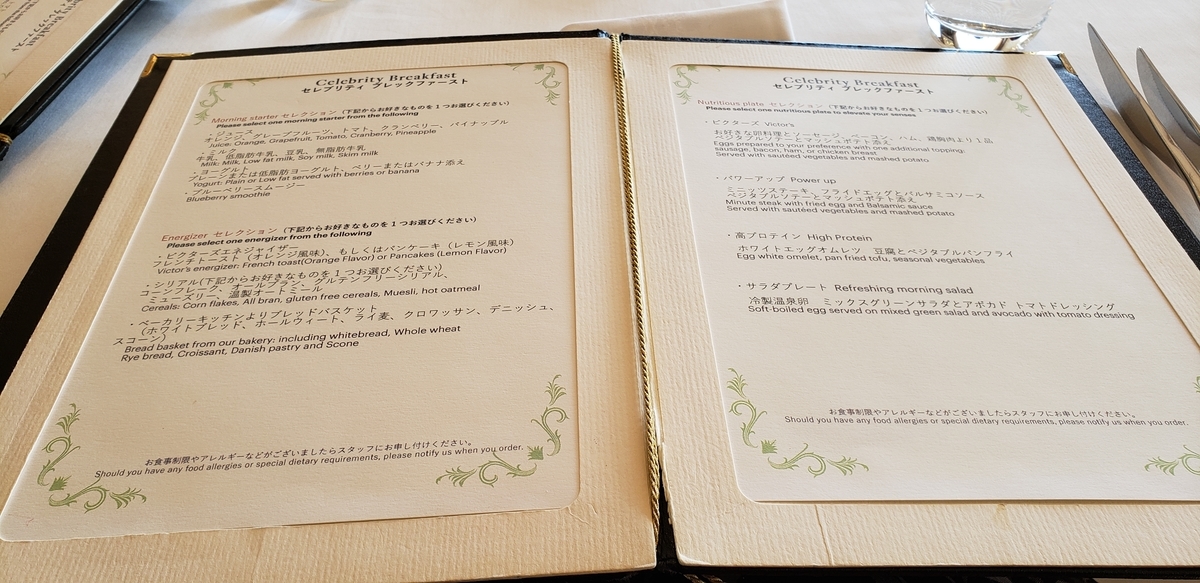 Celebrity Breakfast
セレブリティ ブレックファースト
Morning starter セレクション (下記からお好きなものを1つお選びください)
Please select one morning starter from the following
・ジュース
オレンジ、グレープフルーツ、トマト、クランベリー、パイナップル
Juice: Orange, Grapefruit, Tomato, Cranberry, Pineapple
・ミルク
牛乳、低脂肪牛乳、豆乳、無脂肪牛乳
Milk: Milk, Low fat milk, Soy milk, Skim milk
・ヨーグルト
プレーンまたは低脂肪ヨーグルト、ベリーまたはバナナ添え
Yogurt: Plain or Low fat served with berries or banana
・ブルーベリースムージー
Blueberry smoothie
Energizer セレクション (下記からお好きなものを1つお選びください)
Please select one energizer from the following
・ビクターズエネジャイザー
フレンチトースト (オレンジ風味)、もしくはパンケーキ (レモン風味)
Victor's energizer: French toast(Orange Flavor) or Pancakes (Lemon Flavor)
・シリアル(下記からお好きなものを1つお選びください)
コーンフレーク、オールブラン、グルテンフリーシリアル、
ミューズリー、温製オートミール
Cereals: Corn flakes, All bran, gluten free cereals, Muesli, hot oatmeal
・ベーカリーキッチンよりブレッドバスケット
(ホワイトブレッド、ホールウィート、ライ麦、クロワッサン、デニッシュ、
スコーン)
Bread basket from our bakery: including whitebread, Whole wheat
Rye bread, Croissant, Danish pastry and Scone
お食事制限やアレルギーなどがございましたらスタッフにお申し付けください。
Should you have any food allergies or special dietary requirements, please notify us when you order.
Celebrity Breakfast
セレブリティ ブレックファースト
Nutritious plate セレクション (下記からお好きなものを1つお選びください)
Please select one nutritious plate to elevate your senses
・ビクターズ Victor's
お好きな卵料理とソーセージ、ベーコン、ハム、鶏胸肉より1品
ベジタブルソテーとマッシュポテト添え
Eggs prepared to your preference with one additional topping:
sausage, bacon, ham, or chicken breast
Served with sautéed vegetables and mashed potato
・パワーアップ Power up
ミニッツステーキ、フライドエッグとバルサミコソース
ベジタブルソテーとマッシュポテト添え
Minute steak with fried egg and Balsamic sauce
Served with sautéed vegetables and mashed potato
・高プロテイン High Protein
ホワイトエッグオムレツ 豆腐とベジタブルパンフライ
Egg white omelet, pan fried tofu, seasonal vegetables
・サラダプレート Refreshing morning salad
冷製温泉卵 ミックスグリーンサラダとアボカド トマトドレッシング
Soft-boiled egg served on mixed green salad and avocado with tomato dressing
お食事制限やアレルギーなどがございましたらスタッフにお申し付けください。
Should you have any food allergies or special dietary requirements, please notify us when you order.